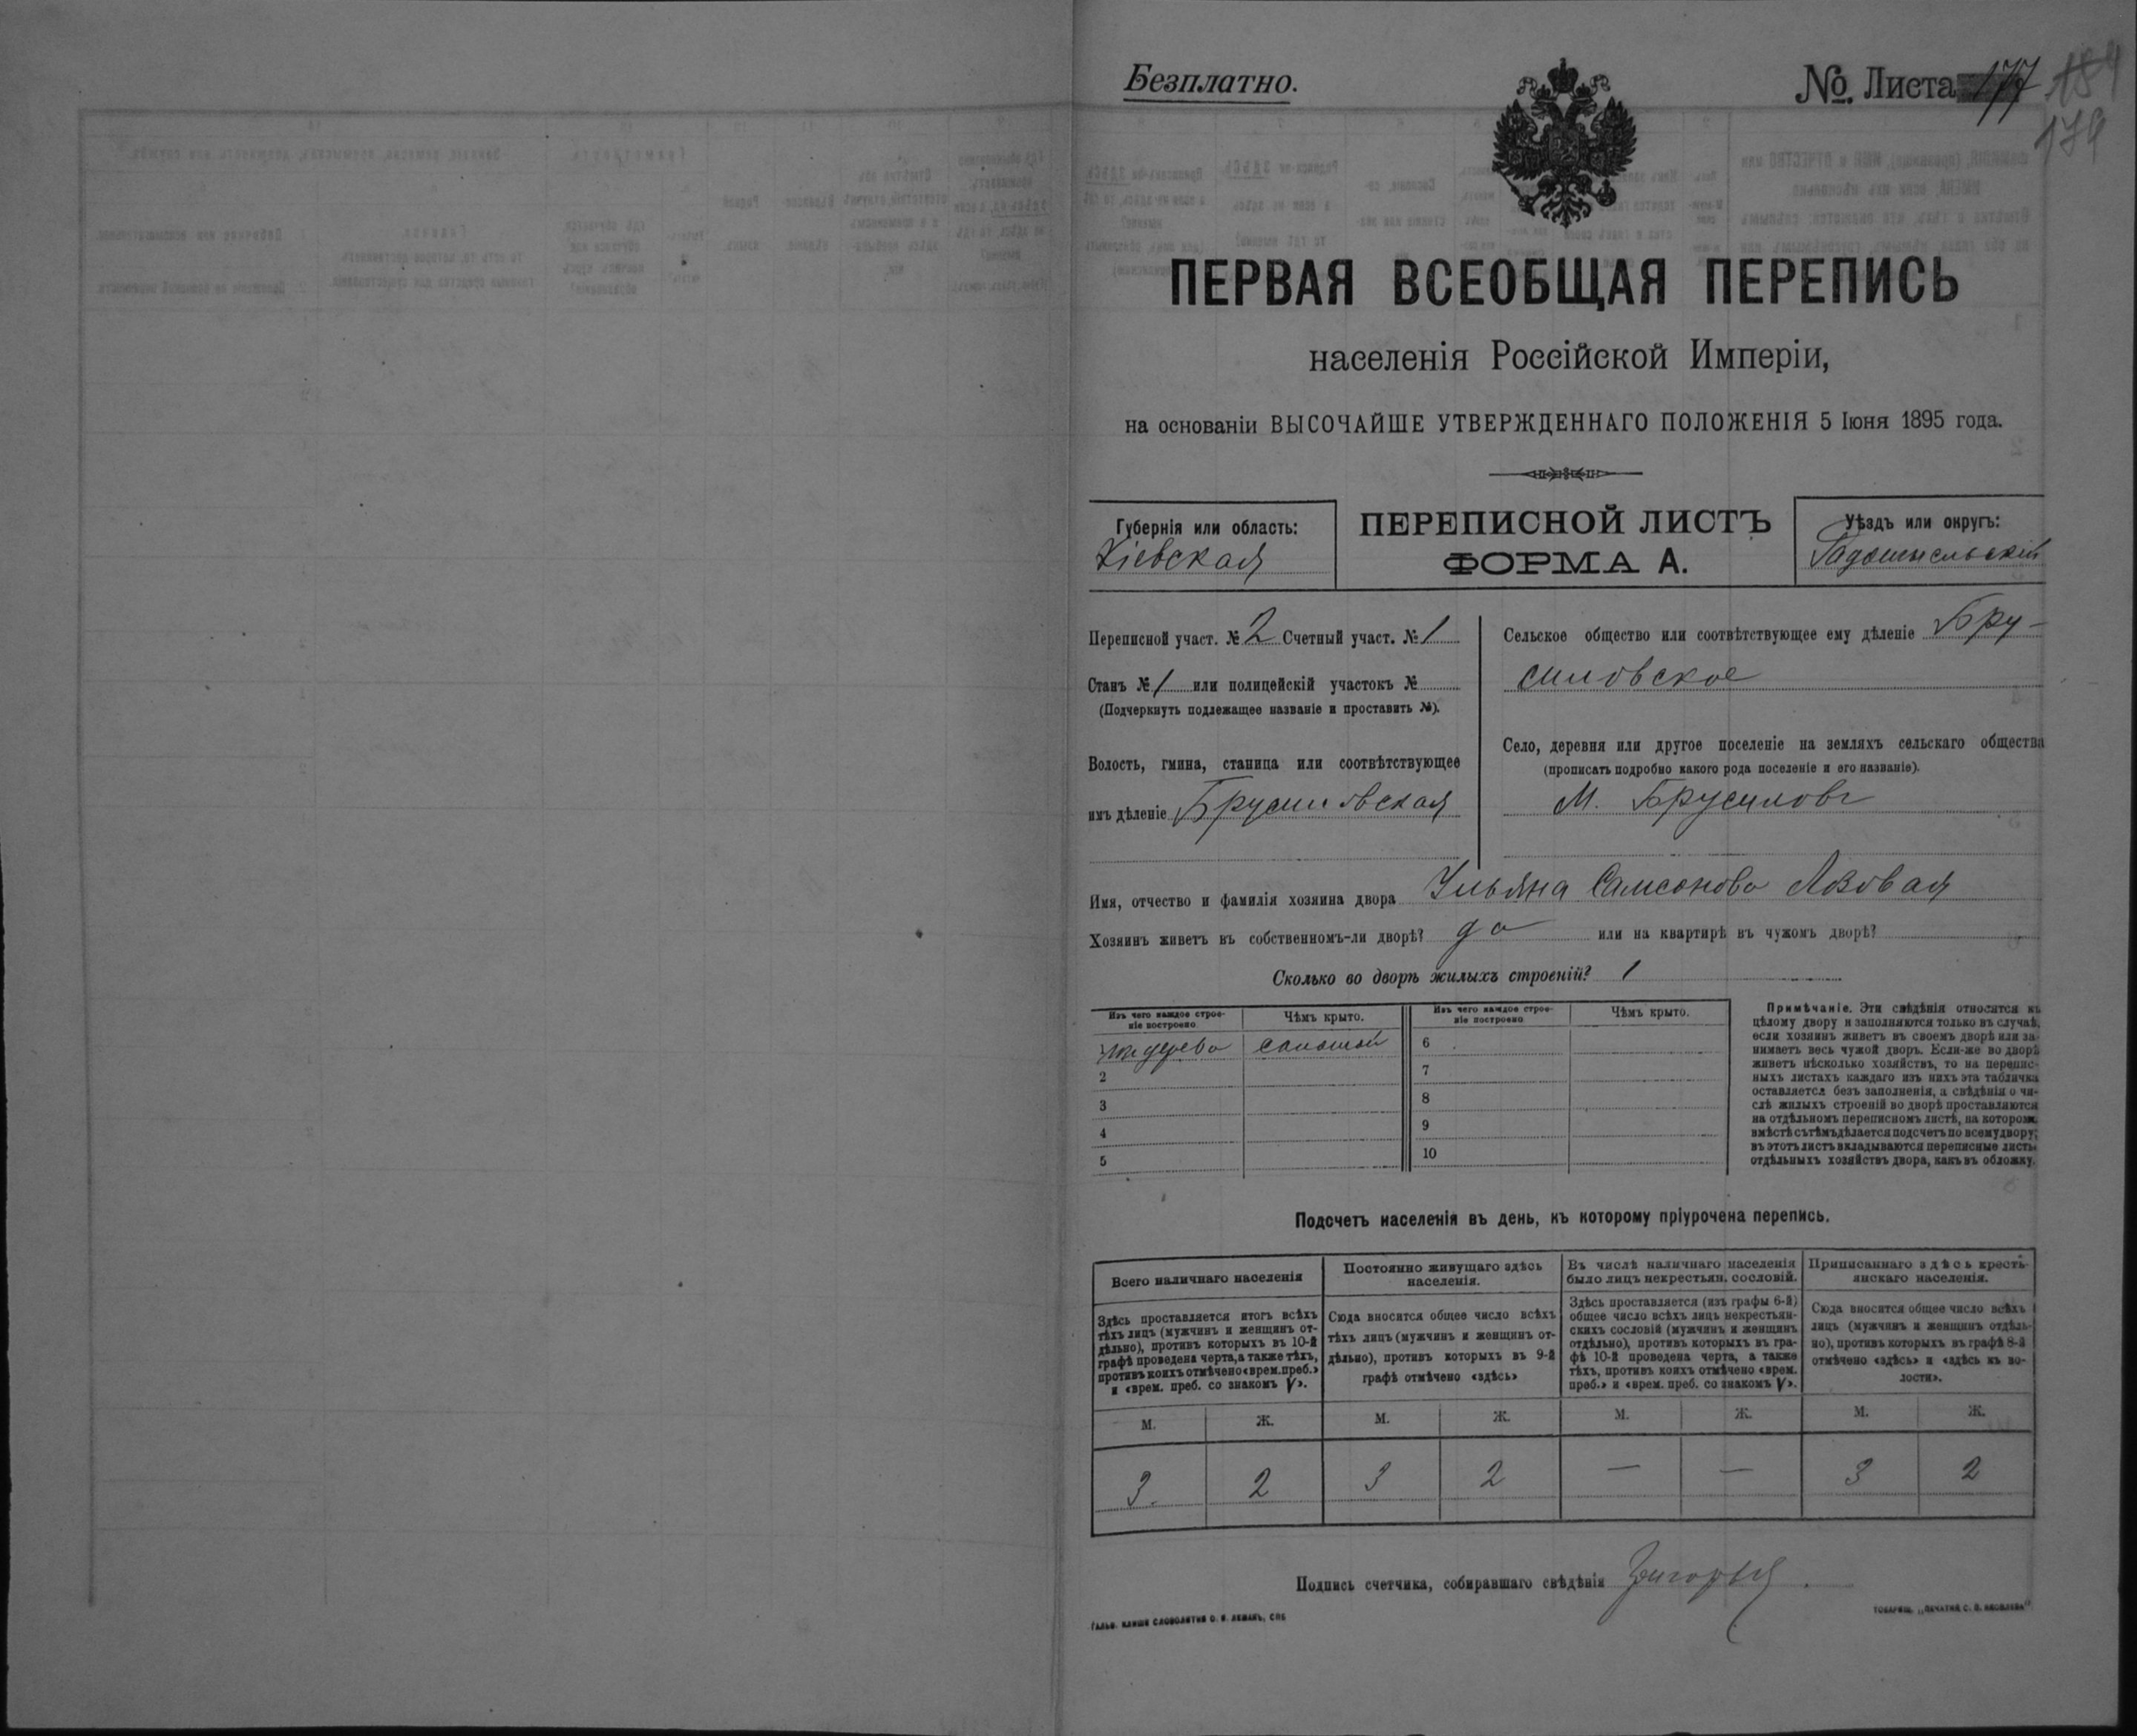 Безплатно.
№ Листа 177
184
179
ПЕРВАЯ ВСЕОБЩАЯ ПЕРЕПИСЬ
населенія Россійской Имперіи,
на основаніи ВЫСОЧАЙШЕ УТВЕРЖДЕННАГО ПОЛОЖЕНІЯ 5 Іюня 1895 года.
Губернія или область:
Кіевская
ПЕРЕПИСНОЙ ЛИСТЪ
ФОРМА А.
Уѣздъ или округъ:
Радомысльскій
Переписной участ. № 2 Счетный участ. № 1
Станъ № 1 или полицейскій участокъ №
(Подчеркнуть подлежащее названіе и проставить №).
Волость, гмина, станица или соотвѣтствующее
имъ дѣленіе Брусиловская
Сельское общество или соотвѣтствующее ему дѣленіе Бру-
силовское
Село, деревня или другое поселеніе на земляхъ сельскаго общества
(прописать подробно какого рода поселеніе и его названіе).
М. Брусиловъ
Имя, отчество и фамилія хозяина двора Ульяна Самсонова Лозовая
Хозяинъ живетъ въ собственномъ-ли дворѣ? да или на квартирѣ въ чужомъ дворѣ?
Сколько во дворѣ жилыхъ строеній? 1
Изъ чего каждое строе-
ніе построено
Чѣмъ крыто.
Изъ чего каждое строе-
ніе построено
Чѣмъ крыто.
дерева соломой 6
2 7
3 8
4 9
5 10
Примѣчаніе. Эти свѣдѣнія относятся къ
цѣлому двору и заполняются только въ случаѣ,
если хозяинъ живетъ въ своемъ дворѣ или за-
нимаетъ весь чужой дворъ. Если-же во дворѣ
живетъ нѣсколько хозяйствъ, то на перепис-
ныхъ листахъ каждаго изъ нихъ эта табличка
оставляется безъ заполненія, а свѣдѣнія о чи-
слѣ жилыхъ строеній во дворѣ проставляются
на отдѣльномъ переписномъ листѣ, на которомъ
вмѣстѣ съ тѣмъ дѣлается подсчетъ по всему двору;
въ этотъ листъ вкладываются переписные листы
отдѣльныхъ хозяйствъ двора, какъ въ обложку.
Подсчетъ населенія въ день, къ которому пріурочена перепись.
Всего наличнаго населенія
Здѣсь проставляется итогъ всѣхъ
тѣхъ лицъ (мужчинъ и женщинъ от-
дѣльно), противъ которыхъ въ 10-й
графѣ проведена черта, а также тѣхъ,
противъ коихъ отмѣчено «врем. преб.»
и «врем. преб. со знакомъ V».
Постоянно живущаго здѣсь
населенія.
Сюда вносится общее число всѣхъ
тѣхъ лицъ (мужчинъ и женщинъ от-
дѣльно), противъ которыхъ въ 9-й
графѣ отмѣчено «здѣсь»
Въ числѣ наличнаго населенія
было лицъ некрестьян. сословій.
Здѣсь проставляется (изъ графы 6-й)
общее число всѣхъ лицъ некрестьян-
скихъ сословій (мужчинъ и женщинъ
отдѣльно), противъ которыхъ въ гра-
фѣ 10-й проведена черта, а также
тѣхъ, противъ коихъ отмѣчено «врем.
преб.» и «врем. преб. со знакомъ V».
Приписаннаго здѣсь кресть-
янскаго населенія.
Сюда вносится общее число всѣхъ
лицъ (мужчинъ и женщинъ отдѣль-
но), противъ которыхъ въ графѣ 8-й
отмѣчено «здѣсь» и «здѣсь къ во-
лости».
М. Ж. М. Ж. М. Ж. М. Ж.
3. 2 3 2 — — 3 2
Подпись счетчика, собиравшаго свѣдѣнія
ГАЛЬВ. КЛИШЕ СЛОВОЛИТНИ О. И. ЛЕМАНЪ, СПБ
ТОВАРИЩ. „ПЕЧАТНЯ С. П. ЯКОВЛЕВА“